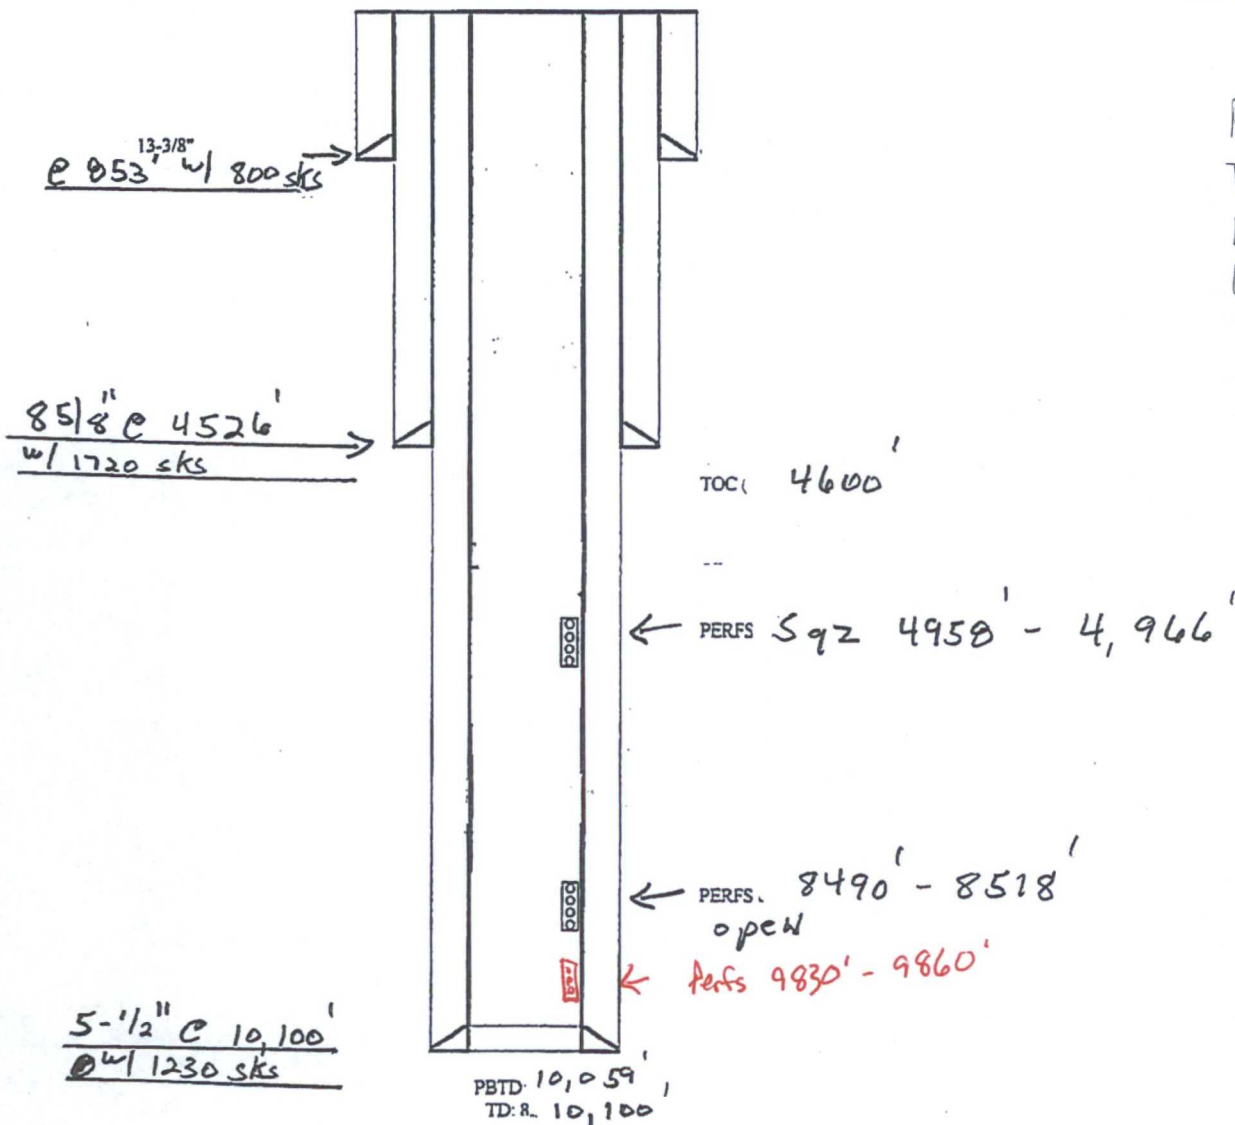 13-3/8"
@ 853' w/ 800 sks
8 5/8" @ 4526'
w/ 1720 sks
TOC( 4600'
--
PERFS Sqz 4958' - 4,966'
PERFS. 8490' - 8518'
open
Perfs 9830' - 9860'
5-1/2" @ 10,100'
w/ 1230 sks
PBTD: 10,059'
TD: 8.. 10,100'